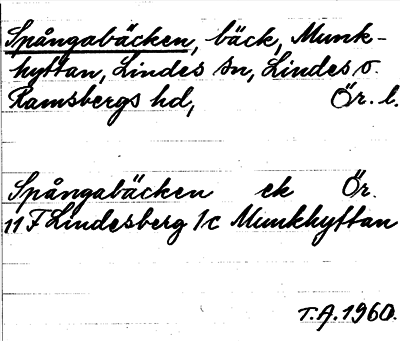 Spångabäcken, bäck, Munk-
hyttan, Lindes sn, Lindes o.
Ramsbergs hd, Ör. l.
Spångabäcken ek Ör.
11 F Lindesberg 1c Munkhyttan
T.A. 1960.